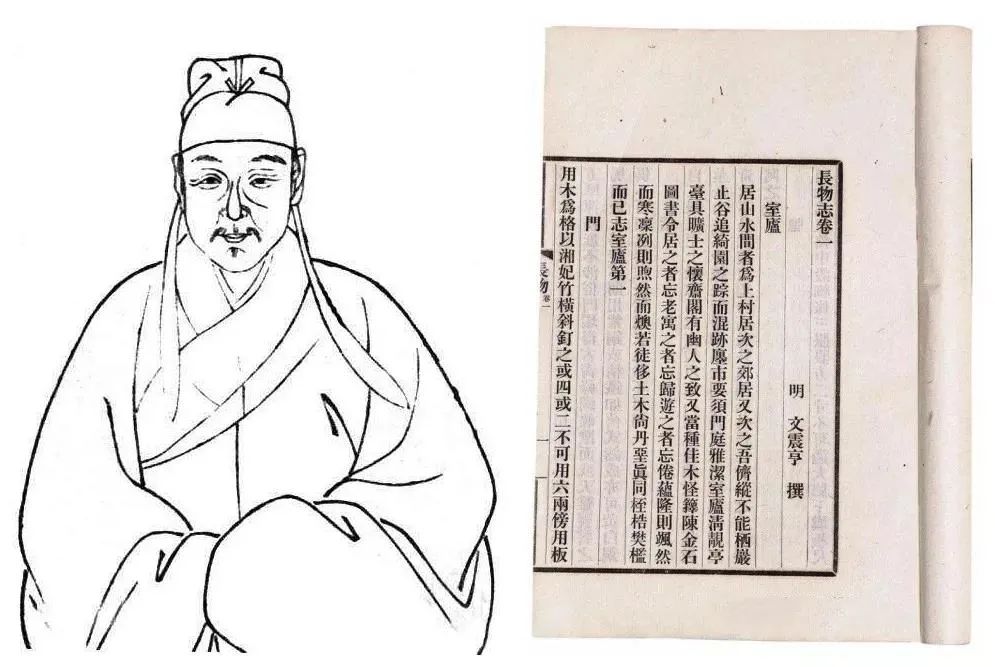 長物志卷一
明 文震亨 撰
室廬
居山水間者爲上村居次之郊居又次之吾儕縱不能栖巖
止谷追綺園之踪而混跡廛市要須門庭雅潔室廬清靚亭
臺具曠士之懷齋閣有幽人之致又當種佳木怪籜陳金石
圖書令居之者忘老寓之者忘歸遊之者忘倦蘊隆則颯然
而寒凜冽則煦然而燠若徒侈土木尙丹堊眞同桎梏樊檻
而已志室廬第一
門
用木爲格以湘妃竹橫斜釘之或四或二不可用六兩傍用板
長物 卷一
一